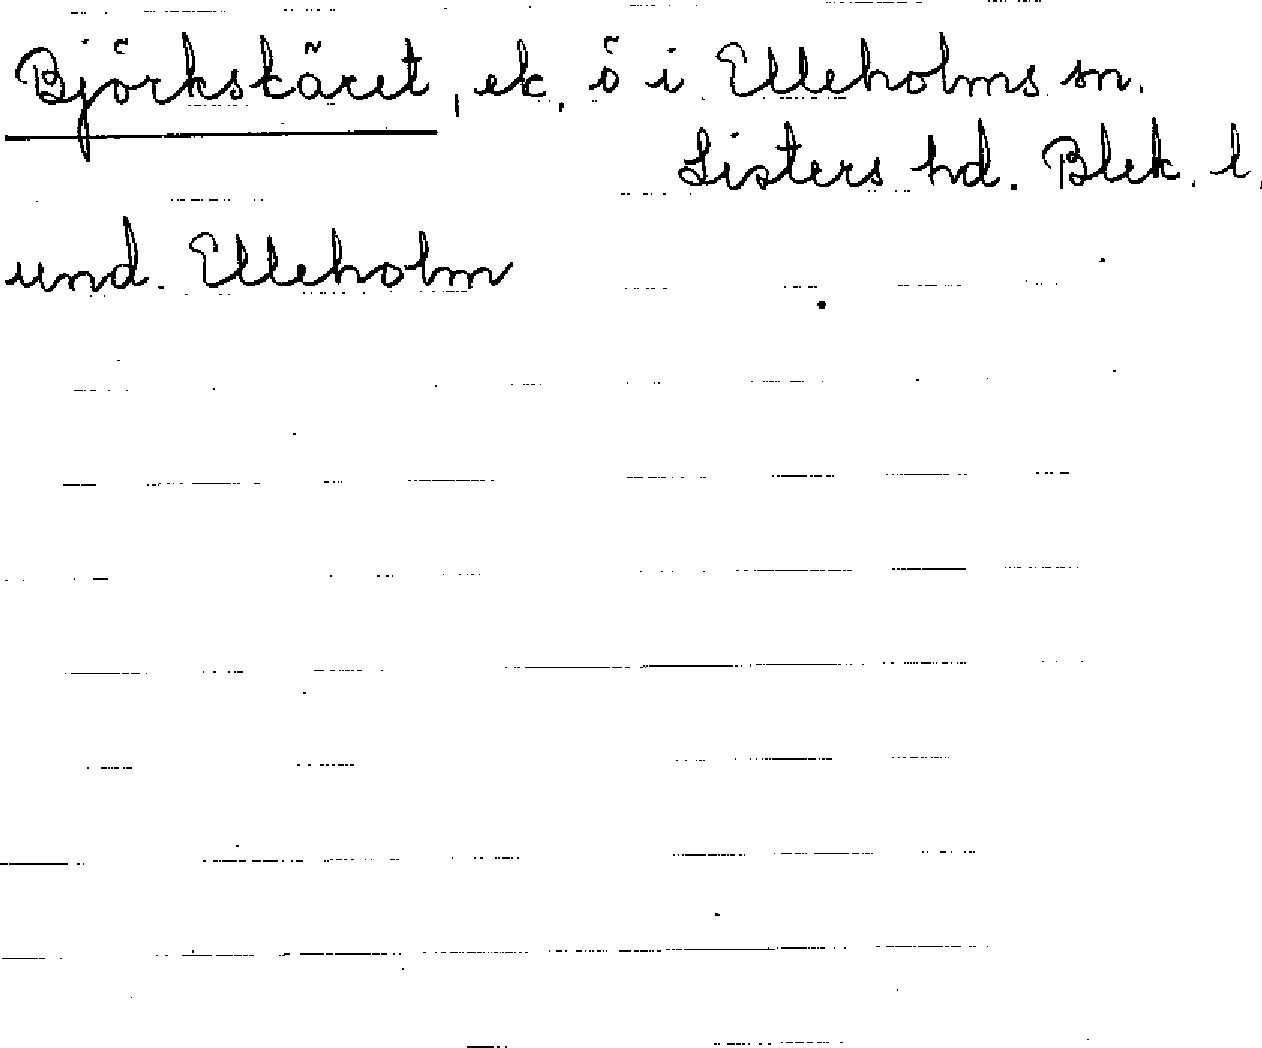 Björkskäret, ek. ö i Elleholms sn.
Listers hd. Blek. l.
und. Elleholm